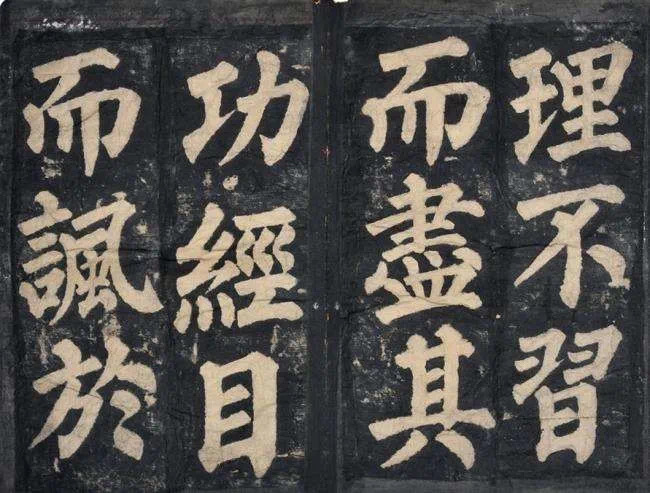 理不習
而盡其
功經目
而諷於